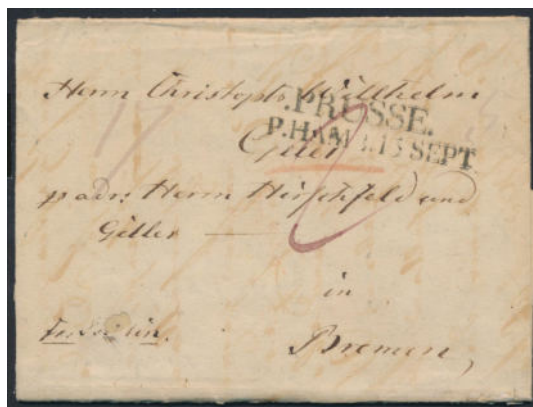 Herrn Christoph Willhelm
PRUSSE.
P.HAMB.13 SEPT.
Geller
p adr: Herrn Hirschfeld und
Geller
in
Bremen,